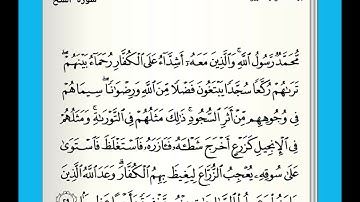 سورة الفتح
مُّحَمَّدٌ رَّسُولُ ٱللَّهِ ۚ وَٱلَّذِينَ مَعَهُۥٓ أَشِدَّآءُ عَلَى ٱلْكُفَّارِ رُحَمَآءُ بَيْنَهُمْ ۖ
تَرَىٰهُمْ رُكَّعًا سُجَّدًا يَبْتَغُونَ فَضْلًا مِّنَ ٱللَّهِ وَرِضْوَٰنًا ۖ سِيمَاهُمْ
فِى وُجُوهِهِم مِّنْ أَثَرِ ٱلسُّجُودِ ۚ ذَٰلِكَ مَثَلُهُمْ فِى ٱلتَّوْرَىٰةِ ۚ وَمَثَلُهُمْ
فِى ٱلْإِنجِيلِ كَزَرْعٍ أَخْرَجَ شَطْـَٔهُۥ فَـَٔازَرَهُۥ فَٱسْتَغْلَظَ فَٱسْتَوَىٰ
عَلَىٰ سُوقِهِۦ يُعْجِبُ ٱلزُّرَّاعَ لِيَغِيظَ بِهِمُ ٱلْكُفَّارَ ۗ وَعَدَ ٱللَّهُ ٱلَّذِينَ